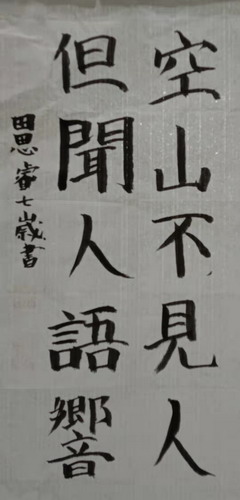 空山不見人
但聞人語響
田思睿七歲書